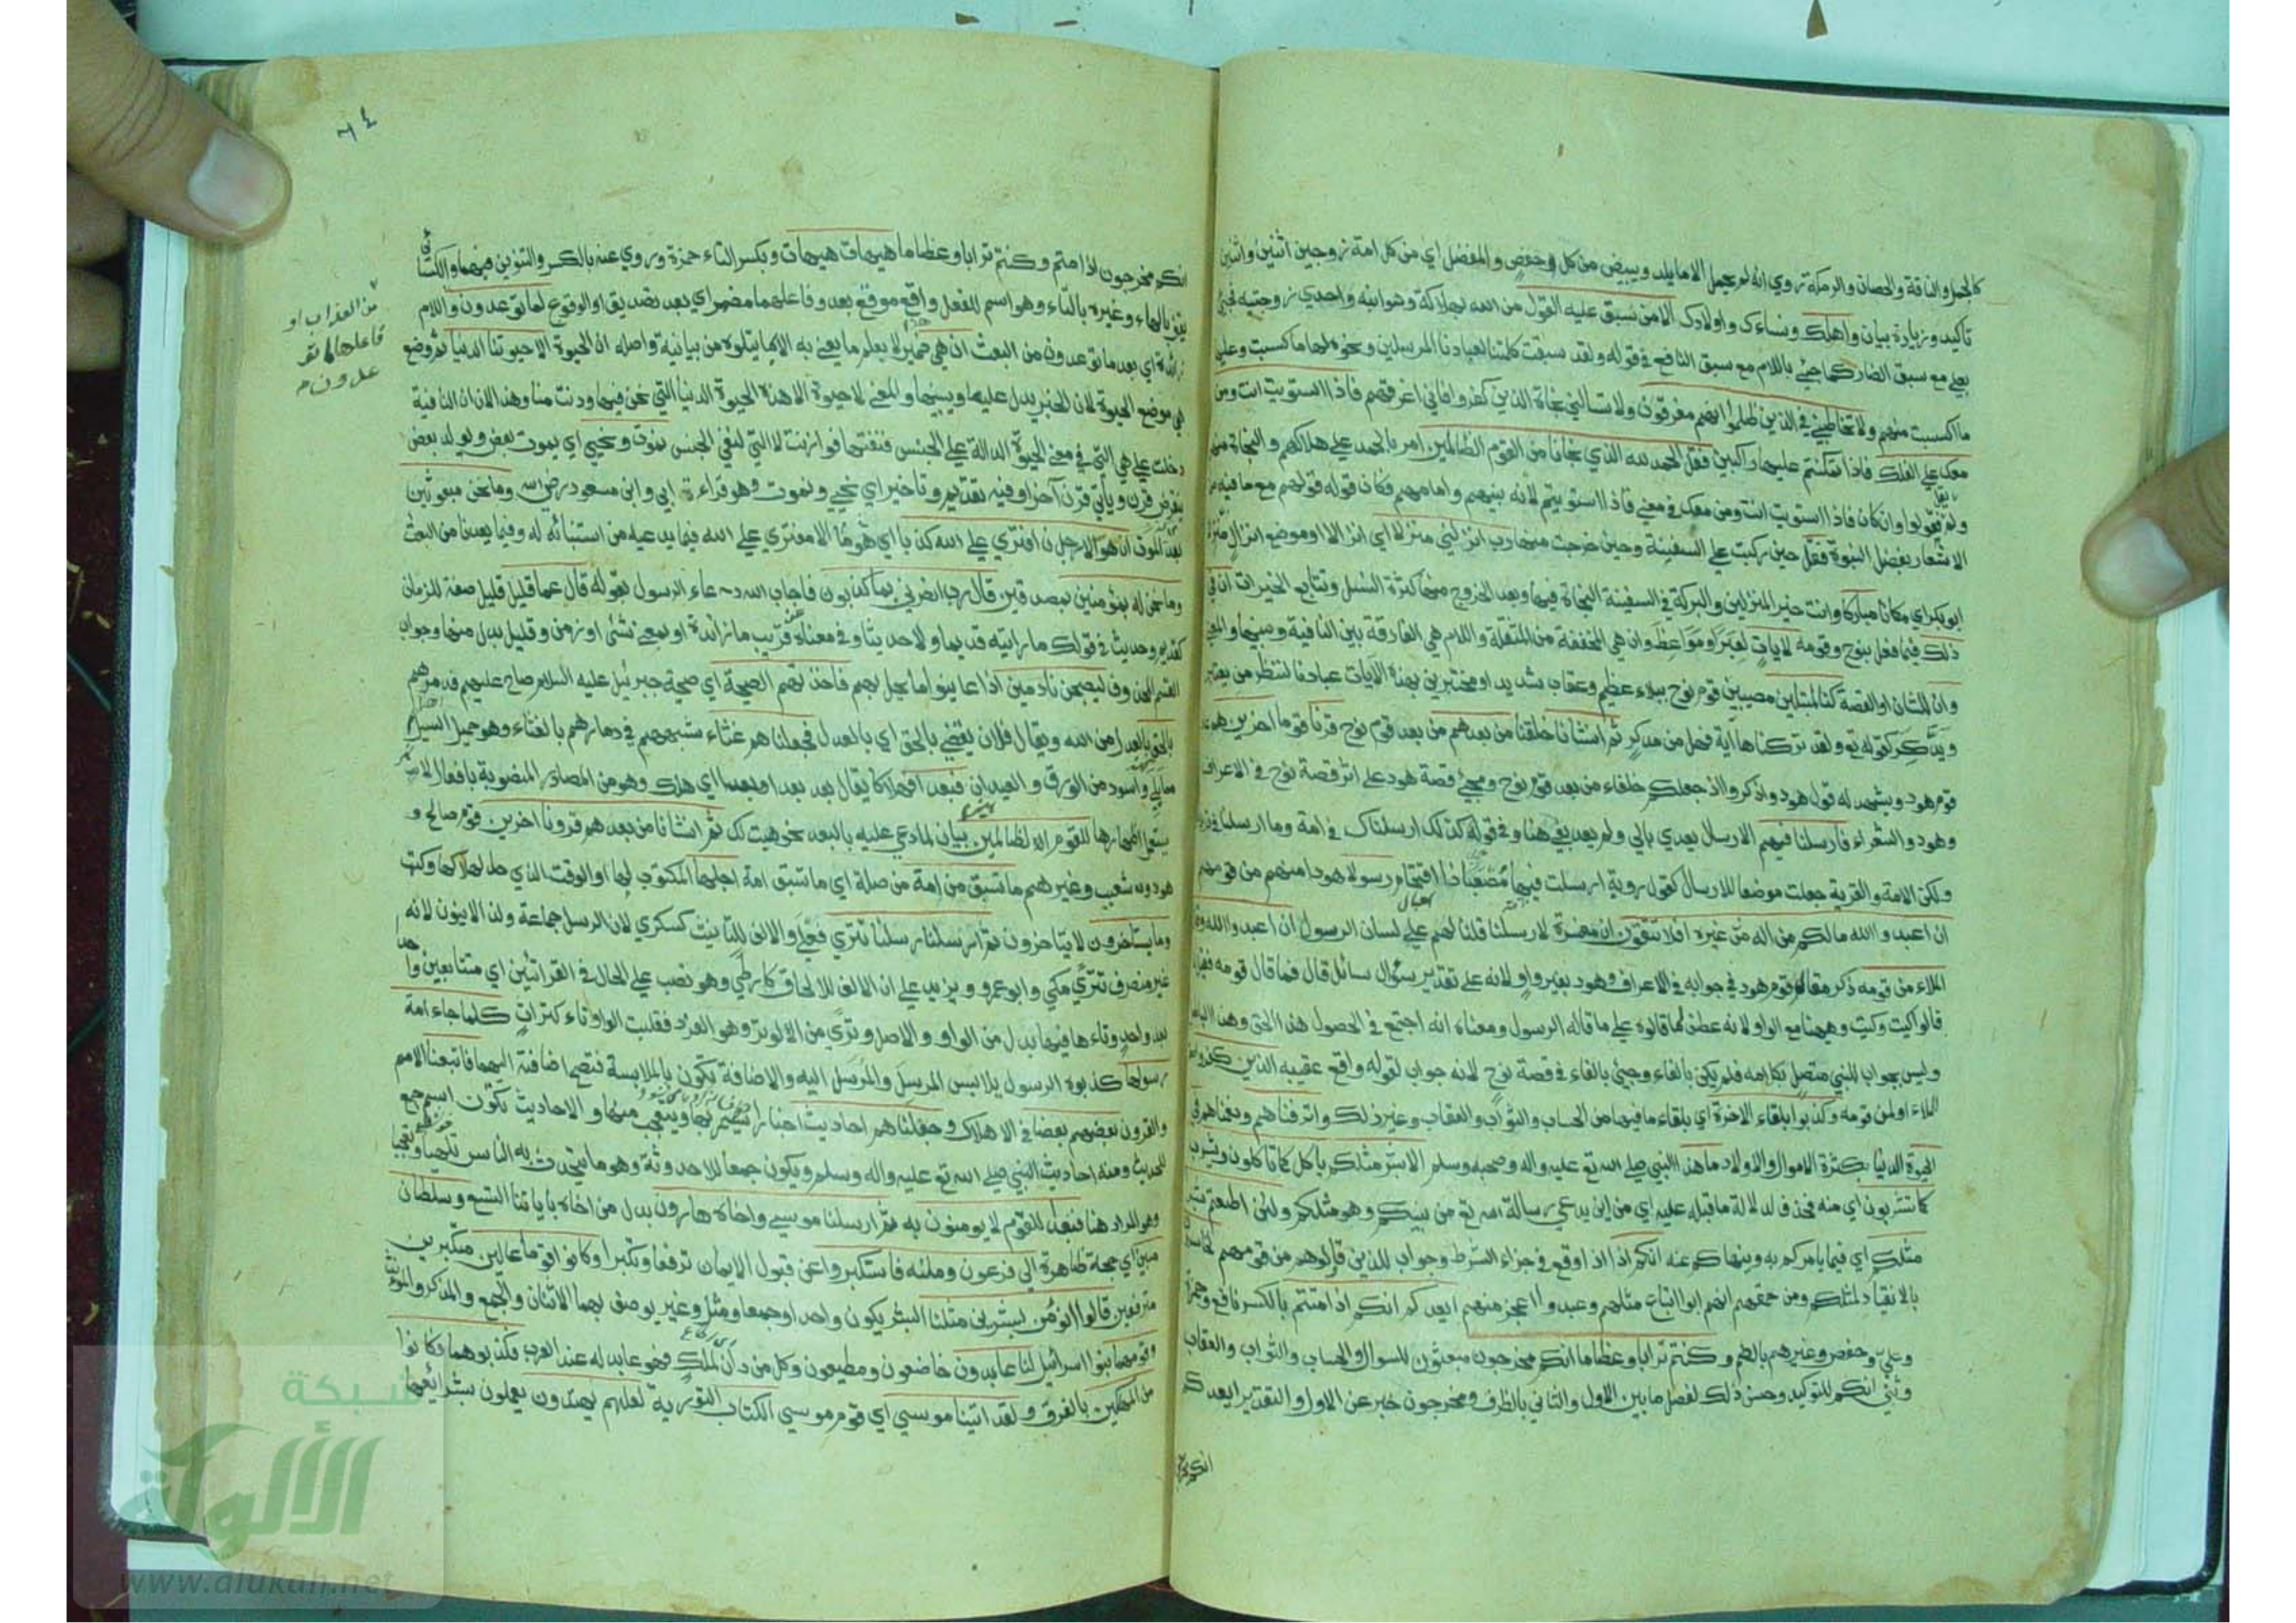 كالجمل والناقة والحصان والرمكة روي انه لم يحمل الا ما يلد ويبيض من كل وحفص والمفضل اي من كل امة زوجين اثنين واثنين
تاكيد وزيادة بيان واهلك ونساءك واولادك الا من سبق عليه القول من الله بهلاكه وهو ابنه واحدي زوجتيه فجئ
بعلي مع سبق الضار كما جئ باللام مع سبق النافع في قوله ولقد سبقت كلمتنا لعبادنا المرسلين ونحوه لها ما كسبت وعليها
ما اكتسبت منهم ولا تخاطبني في الذين ظلموا انهم مغرقون ولا تسالني نجاة الذين كفروا فاني اغرقهم فاذا استويت انت ومن
معك علي الفلك فاذا تمكنتم عليها راكبين فقل الحمد لله الذي نجانا من القوم الظالمين امر بالحمد علي هلاكهم والنجاة منهم
ولم يقل فقولوا وان كان فاذا استويت انت ومن معك في معني فاذا استويتم لانه نبيهم وامامهم فكان قوله قولهم مع ما فيه من
الاشعار بفضل النبوة فقل حين ركبت علي السفينة وحين خرجت منها رب انزلني منزلا اي انزالا او موضع انزال منزلا
ابو بكر اي مكانا مباركا وانت خير المنزلين والبركة في السفينة النجاة فيها وبعد الخروج منها كثرة النسل وتتابع الخيرات ان في
ذلك فيما فعل بنوح وقومه لايات لعبرا ومواعظ وان هي المخففة من المثقلة واللام هي الفارقة بين النافية وبينها والمعني
وان الشان او القصة كنا لمبتلين مصيبين قوم نوح ببلاء عظيم وعقاب شديد او مختبرين بهذه الايات عبادنا لننظر من يعتبر
ويدكر كقوله تع ولقد تركناها آية فهل من مدكر ثم انشانا خلقنا من بعدهم من بعد قوم نوح قرنا قوما اخرين هم
قوم هود ويشهد له قول هود واذكروا اذ جعلكم خلفاء من بعد قوم نوح ومجئ قصة هود علي اثر قصة نوح في الاعراف
وهود والشعراء فارسلنا فيهم الارسال يعدي بالي ولم يعد بفي هنا وفي قوله كذلك ارسلناك في امة وما ارسلنا في قرية
ولكن الامة والقرية جعلت موضعا للارسال كقول روبة ارسلت فيها مصعبا ذا اقتحام رسولا هودا منهم من قومهم
ان اعبدوا الله ما لكم من اله غيره افلا تتقون ان مفسرة لارسلنا قلنا لهم علي لسان الرسول ان اعبدوا الله وقال
الملاء من قومه ذكر مقالة قوم هود في جوابه في الاعراف وهود بغير واو لانه علي تقدير سؤال سائل قال فما قال قومه فقيل
قالوا كيت وكيت وههنا مع الواو لانه عطف لما قالوه علي ما قاله الرسول ومعناه انه اجتمع في الحصول هذا الحق وهذا الباطل
وليس بجواب للنبي متصل بكلامه فلم يكن بالفاء وجئ بالفاء في قصة نوح لانه جواب لقوله واقع عقيبه الذين كفروا
الملاء او لمن قومه وكذبوا بلقاء الاخرة اي بلقاء ما فيها من الحساب والثواب والعقاب وغير ذلك واترفناهم ونعمناهم في
الحيوة الدنيا بكثرة الاموال والاولاد ما هذا النبي صلي الله تع عليه واله وصحبه وسلم الا بشر مثلكم ياكل مما تاكلون ويشرب
مما تشربون اي منه فحذف لدلالة ما قبله عليه اي من اين يدعي رسالة الله تع من بينكم وهو مثلكم ولئن اطعتم بشرا
مثلكم اي فيما يامركم به وينهاكم عنه انكم اذا اذا وقع في جزاء الشرط وجواب للذين قاولوهم من قومهم لخاسرون
بالانقياد لمثلكم ومن حمقهم انهم ابوا اتباع مثلهم وعبدوا اعجز منهم ايعدكم انكم اذا متم بالكسر نافع وحمزة
وعلي وحفص وغيرهم بالضم وكنتم ترابا وعظاما انكم مخرجون مبعثون للسوال والحساب والثواب والعقاب
وثني انكم للتوكيد وحسن ذلك لفصل ما بين الاول والثاني بالظرف ومخرجون خبر عن الاول والتقدير ايعدكم
انكم
٦٤
انكم مخرجون اذا متم وكنتم ترابا وعظاما هيهات هيهات وبكسر التاء حمزة وروي عنه بالكسر والتنوين فيهما والكسائي
يقف بالهاء وغيره بالتاء وهو اسم للفعل واقع موقع بعد وفاعلها مضمر اي بعد تصديق او الوقوع لما توعدون واللام
زائدة اي بعد ما توعدون من البعث ان هي ضمير لا يعلم ما يعني به الا بما يتلوه من بيانه واصله ان الحيوة الا حيوتنا الدنيا ثم وضع
هي موضع الحيوة لان الخبر يدل عليها ويبينها والمعني لا حيوة الا هذه الحيوة الدنيا التي نحن فيها ودنت منا وهذا لان ان النافية
دخلت علي هي التي في معني الحيوة الدالة علي الجنس فنفتها فوازنت لا التي لنفي الجنس نموت ونحيي اي يموت بعض ويولد بعض
ينقرض قرن وياتي قرن آخر او فيه تقديم وتاخير اي نحيي ونموت وهو قراءة ابي وابن مسعود رضي الله وما نحن بمبعوثين
بعد الموت ان هو الا رجل ن افتري علي الله كذبا اي هو ما الا مفتري علي الله فيما يدعيه من استنبائه له وفيما يعدنا من البعث
وما نحن له بمؤمنين بمصدقين قال رب انصرني بما كذبون فاجاب الله دعاء الرسول بقوله قال عما قليل قليل صفة للزمان
كقديم وحديث في قولك ما رايته قديما ولا حديثا وفي معناه عن قريب ما زائدة او بمعني شئ او زمن وقليل بدل منها وجواب
القسم المحذوف ليصبحن نادمين اذا عاينوا ما يحل بهم فاخذتهم الصيحة اي صيحة جبرئيل عليه السلام صاح عليهم فدمرهم
بالحق بالعدل من الله ويقال فلان يقضي بالحق اي بالعدل فجعلناهم غثاء شبههم في دمارهم بالغثاء وهو حميل السيل
مما بلي واسود من الورق والعيدان فبعدا فهلاكا يقال بعد بعدا او بعدا اي هلك وهو من المصادر المنصوبة بافعال لا
يستعمل اظهارها للقوم الظالمين بيان لما دعي عليه بالبعد نحو هيت لك ثم انشانا من بعدهم قرونا اخرين قوم صالح و
هود وشعيب وغيرهم ما تسبق من امة من صلة اي ما تسبق امة اجلها المكتوب لها او الوقت الذي حد لهلاكها وكتب
وما يستاخرون لا يتاخرون ثم ارسلنا رسلنا تتري فعلي والالف للتانيث كسكري لان الرسل جماعة ولذا لا ينون لانه
غير منصرف تتري مكي وابو عمرو ويزيد علي ان الالف للالحاق كارطي وهو نصب علي الحال في القراتين اي متتابعين واحدا
بعد واحد وتاءها فيهما بدل من الواو والاصل وتري من الوتر وهو الفرد فقلبت الواو تاء كتراث كلما جاء امة
رسولها كذبوه الرسول يلابس المرسل والمرسل اليه والاضافة تكون بالملابسة فتصح اضافته اليهما فاتبعنا الامم
والقرون بعضهم بعضا في الاهلاك وجعلناهم احاديث اخبارا يسمر بها ويتعجب منها والاحاديث تكون اسم جمع
للحديث ومنه احاديث النبي صلي الله تع عليه واله وسلم ويكون جمعا للاحدوثة وهو ما يتحدث به الناس تلهيا وتعجبا
وهو المراد هنا فبعدا للقوم لا يومنون به ثم ارسلنا موسي واخاه هارون بدل من اخاه باياتنا التسع وسلطان
مبين اي حجة ظاهرة الي فرعون وملئه فاستكبروا عن قبول الايمان ترفعا وتكبرا وكانوا قوما عالين متكبرين
مترفعين قالوا انؤمن لبشرين مثلنا البشر يكون واحدا وجمعا ومثل وغير يوصف بهما الاثنان والجمع والمذكر والمؤنث
وقومهما بنوا اسرائيل لنا عابدون خاضعون ومطيعون وكل من دان لملك فهو عابد له عند العرب فكذبوهما فكانوا
من المهلكين بالغرق ولقد اتينا موسي اي قوم موسي الكتاب التورية لعلهم يهتدون يعملون بشرائعها
من العذاب او
فاعلها ما تو
عدون م
شبكة
الألوكة
www.alukah.net